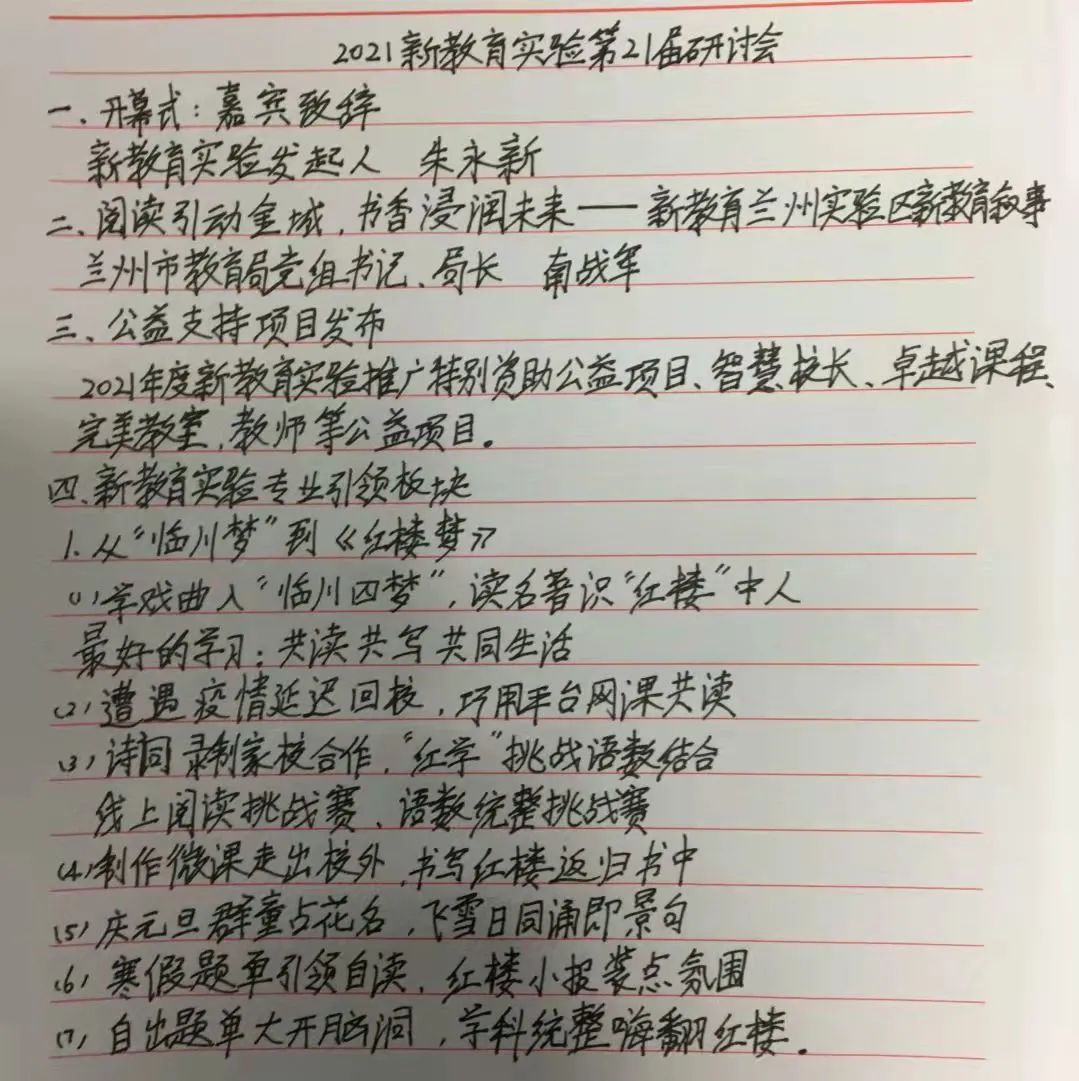 2021新教育实验第21届研讨会
一、开幕式：嘉宾致辞
新教育实验发起人 朱永新
二、阅读引动全域，书香浸润未来——新教育兰州实验区新教育叙事
兰州市教育局党组书记、局长 南战军
三、公益支持项目发布
2021年度新教育实验推广特别资助公益项目、智慧校长、卓越课程、
完美教室，教师等公益项目。
四、新教育实验专业引领板块
1.从“临川梦”到《红楼梦》
(1)学戏曲入“临川四梦”，读名著识“红楼”中人
最好的学习：共读共写共同生活
(2)遭遇疫情延迟回校，巧用平台网课共读
(3)诗词录制家校合作，“红学”挑战语数结合
线上阅读挑战赛、语数统整挑战赛
(4)制作微课走出校外，书写红楼返归书中
(5)庆元旦群童占花名，飞雪日同诵即景句
(6)寒假题单引领自读，红楼小报装点氛围
(7)自出题单大开脑洞，学科统整嗨翻红楼。